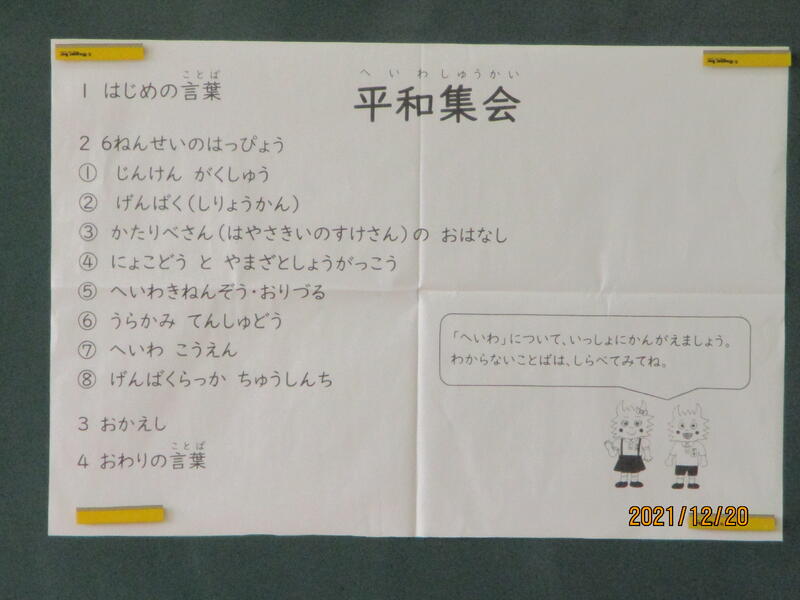 平和集会
へいわしゅうかい
1 はじめの言葉
ことば
2 6ねんせいのはっぴょう
① じんけん がくしゅう
② げんばく(しりょうかん)
③ かたりべさん(はやさきいのすけさん)の おはなし
④ にょこどう と やまざとしょうがっこう
⑤ へいわきねんぞう・おりづる
⑥ うらかみ てんしゅどう
⑦ へいわ こうえん
⑧ げんばくらっか ちゅうしんち
3 おかえし
4 おわりの言葉
ことば
「へいわ」について、いっしょにかんがえましょう。
わからないことばは、しらべてみてね。
2021/12/20